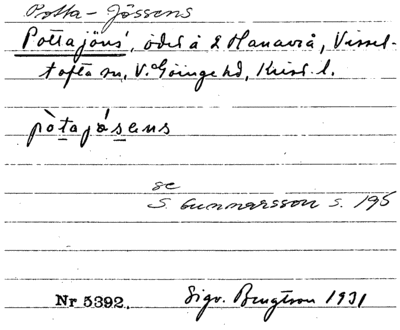 Potta-Jössens
Pottajöns', öde å 2 Hanaurå, Vissel-
tofta sn, V. Göinge hd, Krist. l.
pòtajǻsens
se
S. Gunnarsson s. 195
Nr 5392. Sigv. Bengtson 1931